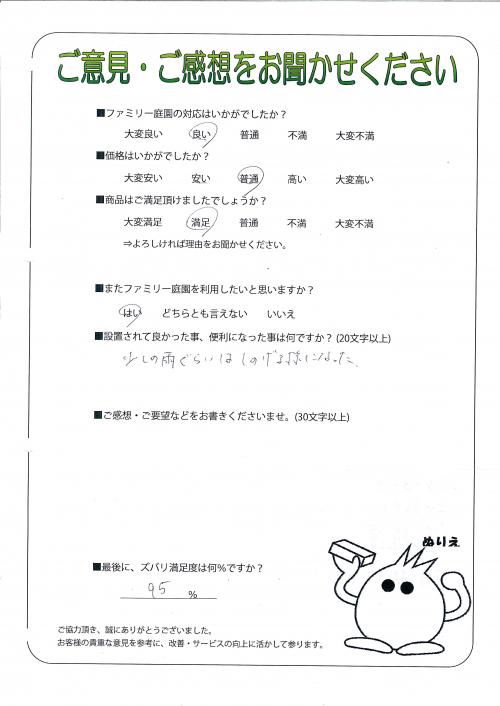 ご意見・ご感想をお聞かせください
■ファミリー庭園の対応はいかがでしたか？
大変良い 良い 普通 不満 大変不満
■価格はいかがでしたか？
大変安い 安い 普通 高い 大変高い
■商品はご満足頂けましたでしょうか？
大変満足 満足 普通 不満 大変不満
⇒よろしければ理由をお聞かせください。
■またファミリー庭園を利用したいと思いますか？
はい どちらとも言えない いいえ
■設置されて良かった事、便利になった事は何ですか？(20文字以上)
少しの雨ぐらいはしのげる様になった。
■ご感想・ご要望などをお書きくださいませ。(30文字以上)
ぬりえ
■最後に、ズバリ満足度は何％ですか？
95 %
ご協力頂き、誠にありがとうございました。
お客様の貴重な意見を参考に、改善・サービスの向上に活かして参ります。